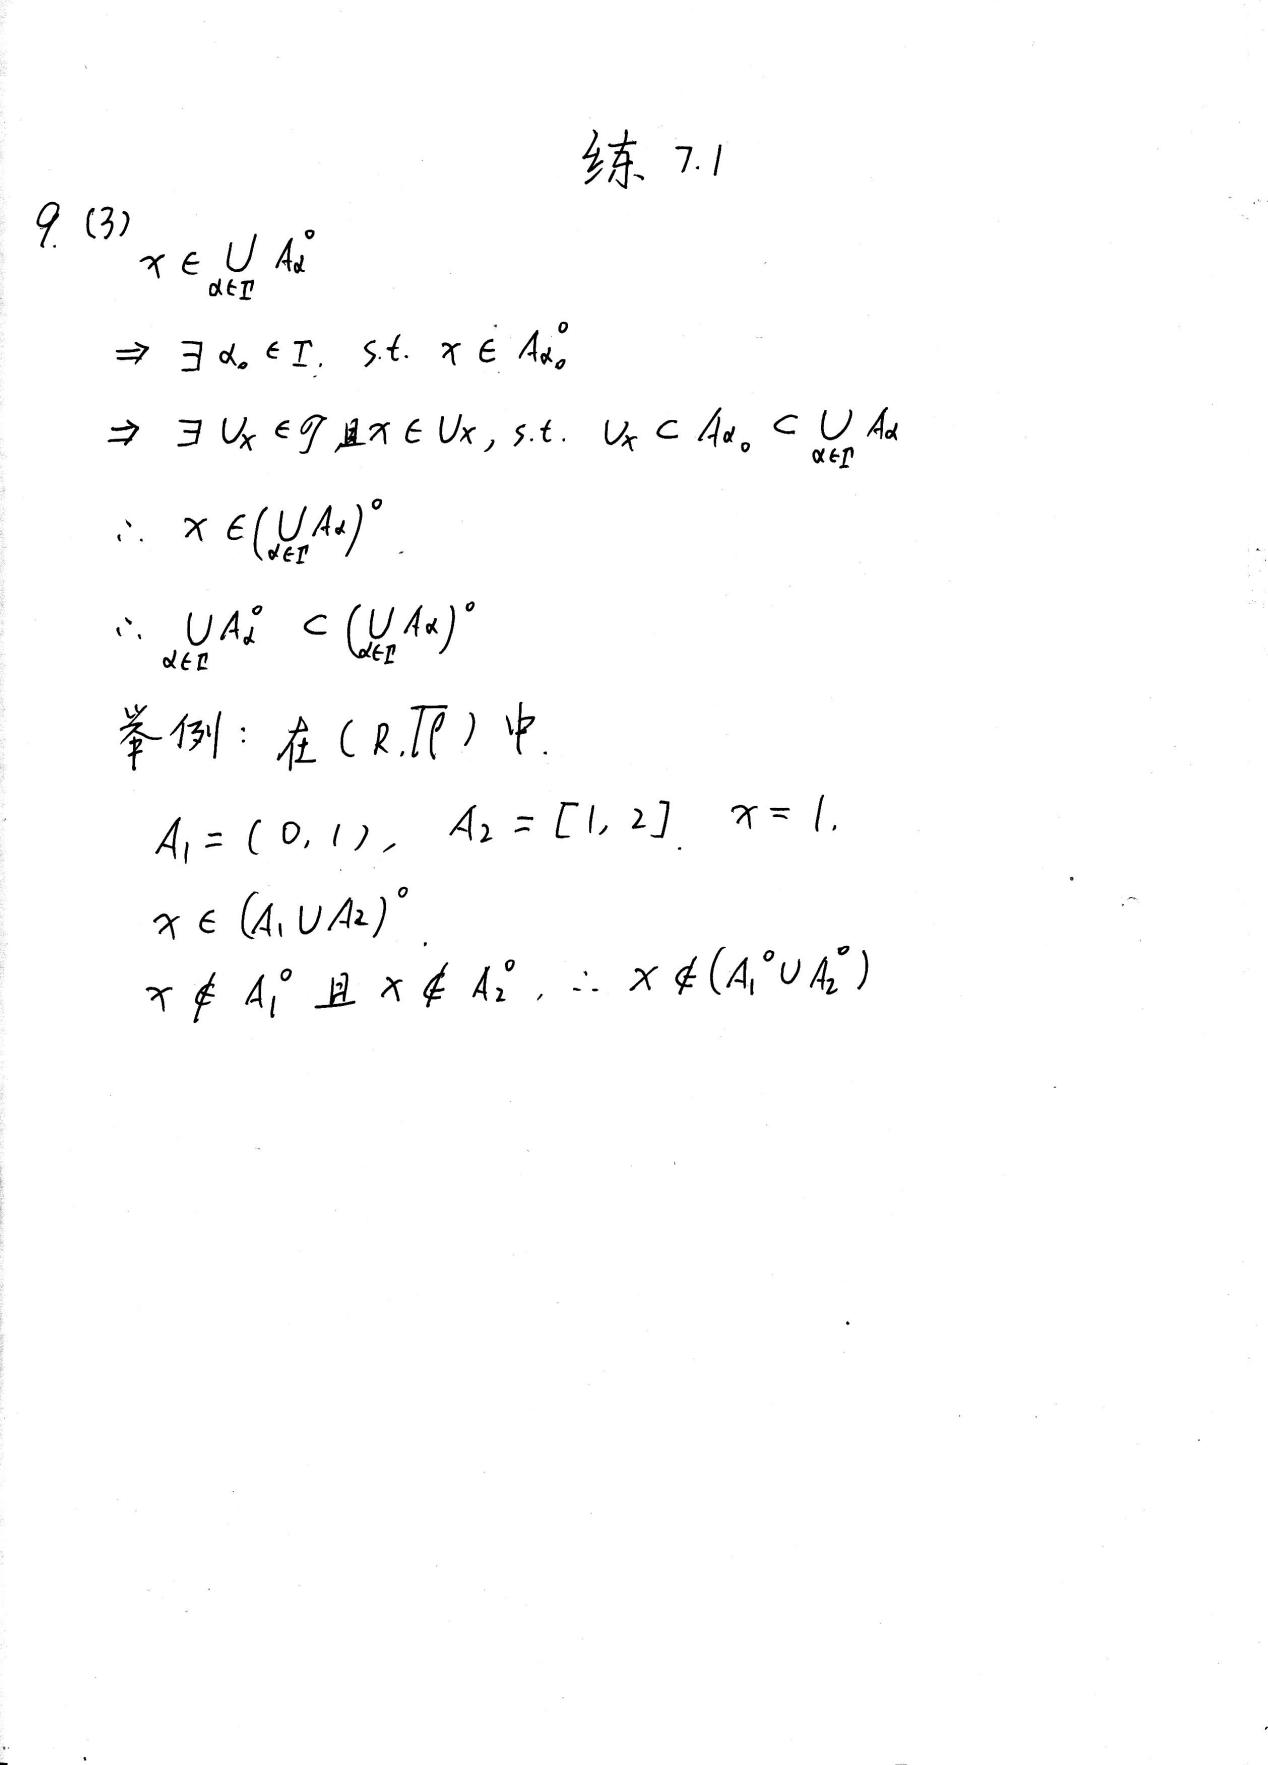 练 7.1
9. (3)
x ∈ ⋃_{α∈Γ} A_α°
⇒ ∃ α₀ ∈ Γ. s.t. x ∈ A_{α₀}°
⇒ ∃ U_x ∈ 𝒯 且 x ∈ U_x, s.t. U_x ⊂ A_{α₀} ⊂ ⋃_{α∈Γ} A_α
∴ x ∈ (⋃_{α∈Γ} A_α)°
∴ ⋃_{α∈Γ} A_α° ⊂ (⋃_{α∈Γ} A_α)°
举例: 在 (R, ) 中.
A₁ = (0, 1), A₂ = [1, 2] x = 1.
x ∈ (A₁ ∪ A₂)°.
x ∉ A₁° 且 x ∉ A₂°, ∴ x ∉ (A₁° ∪ A₂°)